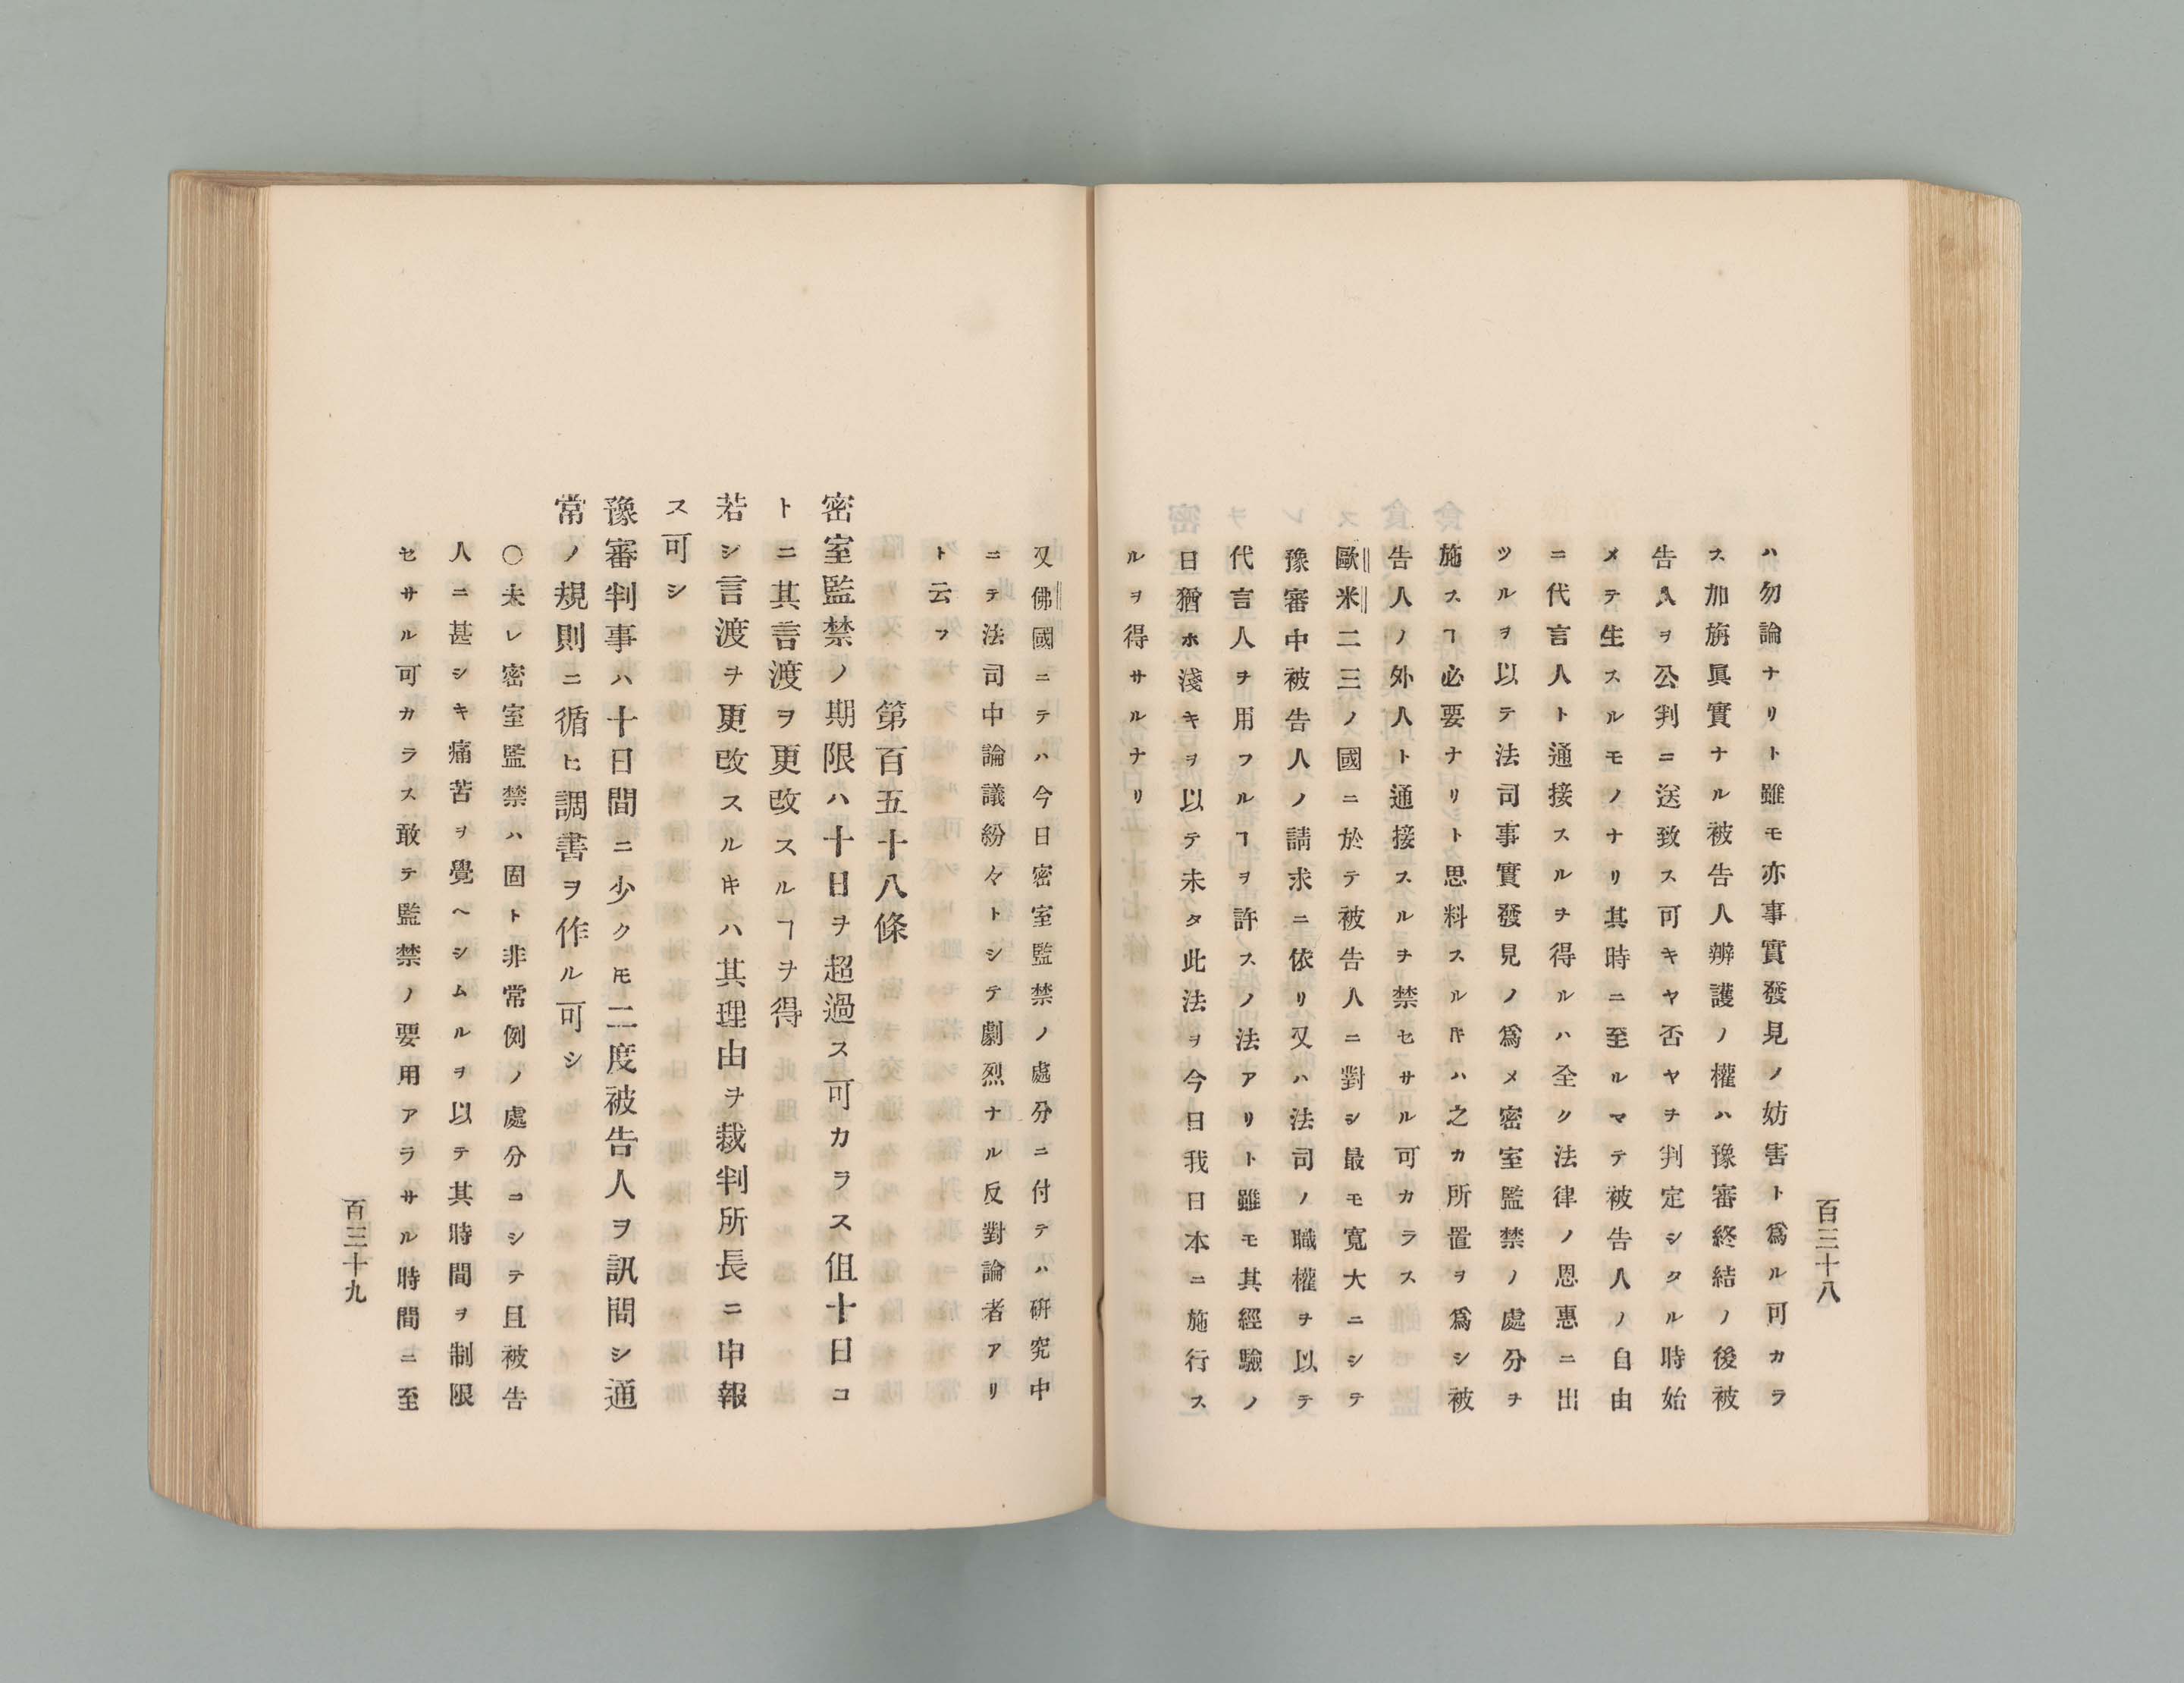 百三十八
ハ勿論ナリト雖モ亦事實發見ノ妨害ト爲ル可カラ
ス加旃眞實ナル被告人辨護ノ權ハ豫審終結ノ後被
告人ヲ公判ニ送致ス可キヤ否ヤヲ判定シタル時始
メテ生スルモノナリ其時ニ至ルマテ被告人ノ自由
ニ代言人ト通接スルヲ得ルハ全ク法律ノ恩惠ニ出
ツルヲ以テ法司事實發見ノ爲メ密室監禁ノ處分ヲ
施スヿ必要ナリト思料スルキハ之カ所置ヲ爲シ被
告人ノ外人ト通接スルヲ禁セサル可カラス
歐米二三ノ國ニ於テ被告人ニ對シ最モ寬大ニシテ
豫審中被告人ノ請求ニ依リ又ハ法司ノ職權ヲ以テ
代言人ヲ用フルヿヲ許スノ法アリト雖モ其經驗ノ
日猶ホ淺キヲ以テ未タ此法ヲ今日我日本ニ施行ス
ルヲ得サルナリ
又佛國ニテハ今日密室監禁ノ處分ニ付テハ硏究中
ニテ法司中論議紛々トシテ劇烈ナル反對論者アリ
ト云フ
第百五十八條
密室監禁ノ期限ハ十日ヲ超過ス可カラス但十日コ
トニ其言渡ヲ更改スルヿヲ得
若シ言渡ヲ更改スルキハ其理由ヲ裁判所長ニ申報
ス可シ
豫審判事ハ十日間ニ少クモ二度被告人ヲ訊問シ通
常ノ規則ニ循ヒ調書ヲ作ル可シ
〇夫レ密室監禁ハ固ト非常例ノ處分コシテ且被告
人ニ甚シキ痛苦ヲ覺ヘシムルヲ以テ其時間ヲ制限
セサル可カラス敢テ監禁ノ要用アラサル時間ニ至
百三十九